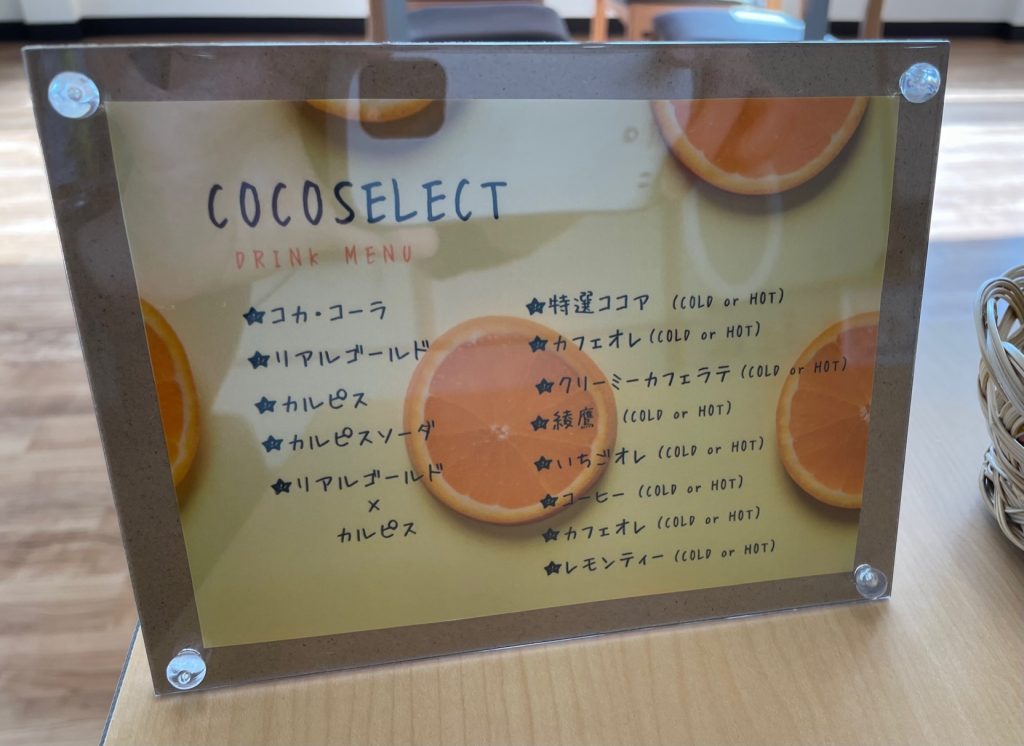 COCOSELECT
DRINK MENU
★コカ・コーラ
★リアルゴールド
★カルピス
★カルピスソーダ
★リアルゴールド
×
カルピス
★特選ココア (COLD or HOT)
★カフェオレ (COLD or HOT)
★クリーミーカフェラテ (COLD or HOT)
★綾鷹 (COLD or HOT)
★いちごオレ (COLD or HOT)
★コーヒー (COLD or HOT)
★カフェオレ (COLD or HOT)
★レモンティー (COLD or HOT)